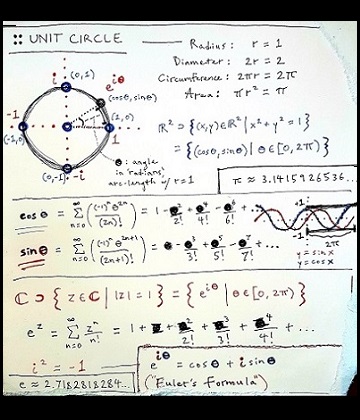 :: UNIT CIRCLE
Radius: r = 1
Diameter: 2r = 2
Circumference: 2πr = 2π
Area: πr² = π
i (0,1) e^iθ
(cosθ, sinθ)
-1 1
(-1,0) (1,0)
(0,-1) -i
θ: angle
in radians,
arc-length w/ r=1
ℝ² ⊃ {(x,y)∈ℝ² | x²+y² = 1}
= {(cosθ, sinθ) | θ∈[0, 2π)}
π ≈ 3.1415926536...
cosθ = Σ n=0 ∞ ((-1)^n θ^2n / (2n)!) = 1 - θ²/2! + θ⁴/4! - θ⁶/6! + ...
sinθ = Σ n=0 ∞ ((-1)^n θ^2n+1 / (2n+1)!) = θ - θ³/3! + θ⁵/5! - θ⁷/7! + ...
+1
-1
2π
y = sin x
y = cos x
ℂ ⊃ {z∈ℂ | |z| = 1} = {e^iθ | θ∈[0, 2π)}
e^z = Σ n=0 ∞ z^n/n! = 1 + z + z²/2! + z³/3! + z⁴/4! + ...
i² = -1
e^iθ = cosθ + i sinθ
("Euler's Formula")
e ≈ 2.7182818284...